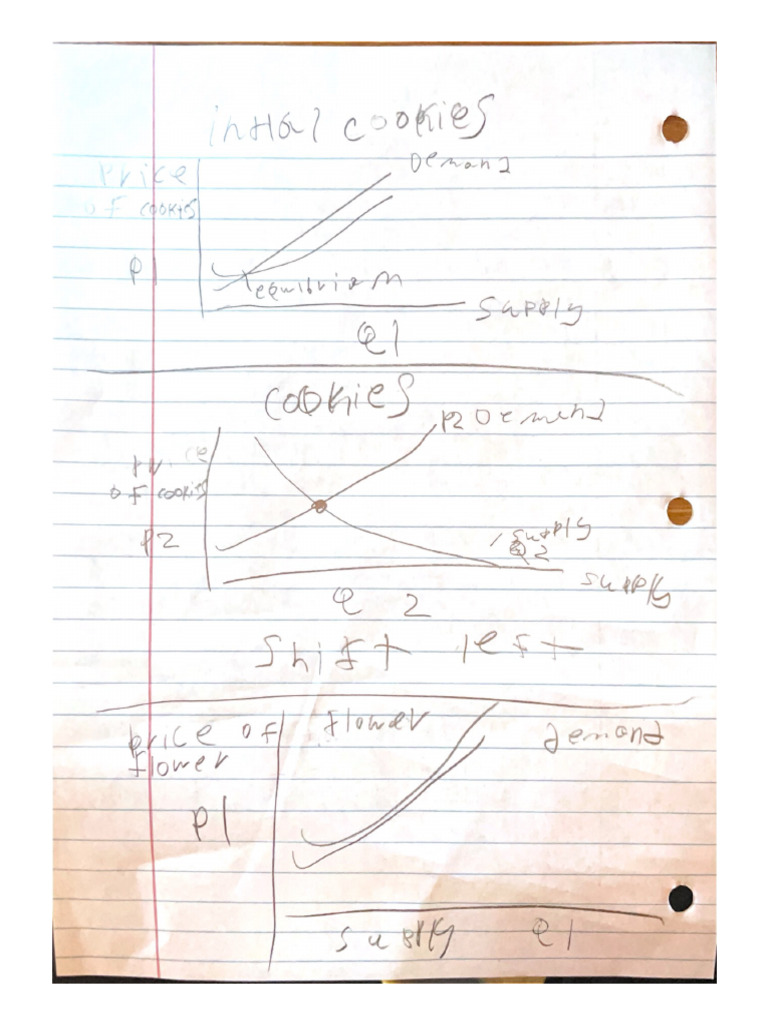 inital cookies
Demand
price
of cookies
P1
equilibriam
Supply
Q1
cookies
P2 Demand
of cookies
P2
supply
Q2
supply
Q 2
Shift left
price of
flower
flower
demand
P1
supply Q1